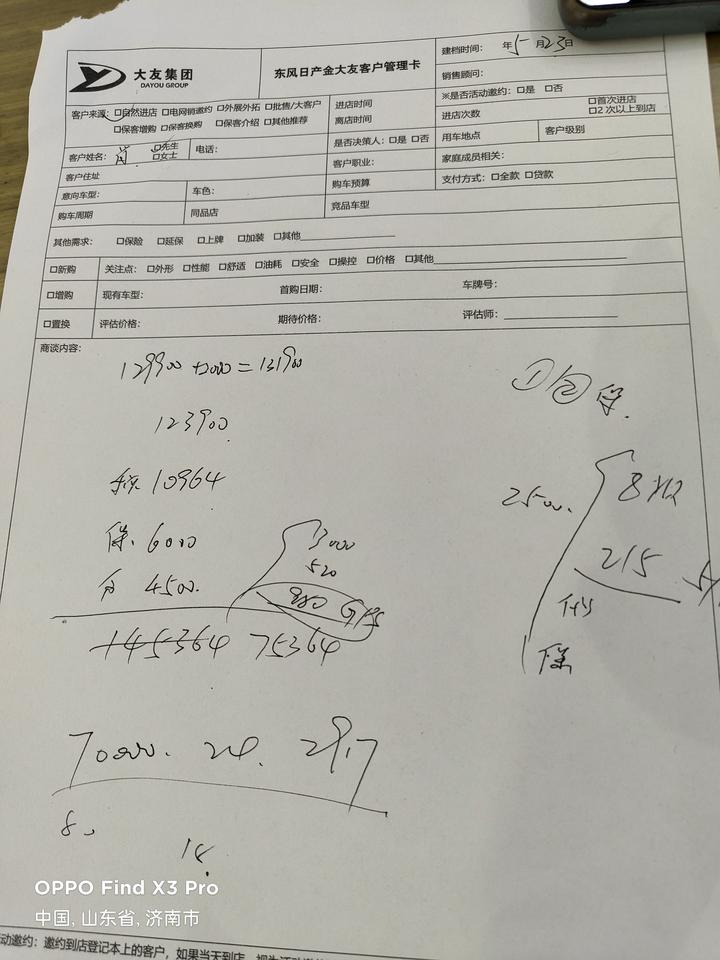 大友集团
DAYOU GROUP
东风日产金大友客户管理卡
建档时间: 年 5 月 23 日
销售顾问:
客户来源: □自然进店 □电网销邀约 □外展外拓 □批售/大客户
□保客增购 □保客换购 □保客介绍 □其他推荐
进店时间
离店时间
※是否活动邀约: □是 □否
进店次数 □首次进店
□2 次以上到店
客户姓名: □先生
□女士
电话:
是否决策人: □是 □否
用车地点 客户级别
客户住址
客户职业:
家庭成员相关:
意向车型: 车色: 购车预算 支付方式: □全款 □贷款
购车周期 同品店 竞品车型
其他需求: □保险 □延保 □上牌 □加装 □其他
□新购 关注点: □外形 □性能 □舒适 □油耗 □安全 □操控 □价格 □其他
□增购 现有车型: 首购日期: 车牌号:
□置换 评估价格: 期待价格: 评估师:
商谈内容:
129900 +2000 = 131900
① ② 保.
123900
10964
2500.
保. 6000
3000
520
215
4500.
880 GPS
145364 75364
保
70000. 24. 2917
8.
18.
OPPO Find X3 Pro
中国, 山东省, 济南市
动邀约: 邀约到店登记本上的客户, 如果当天到店,